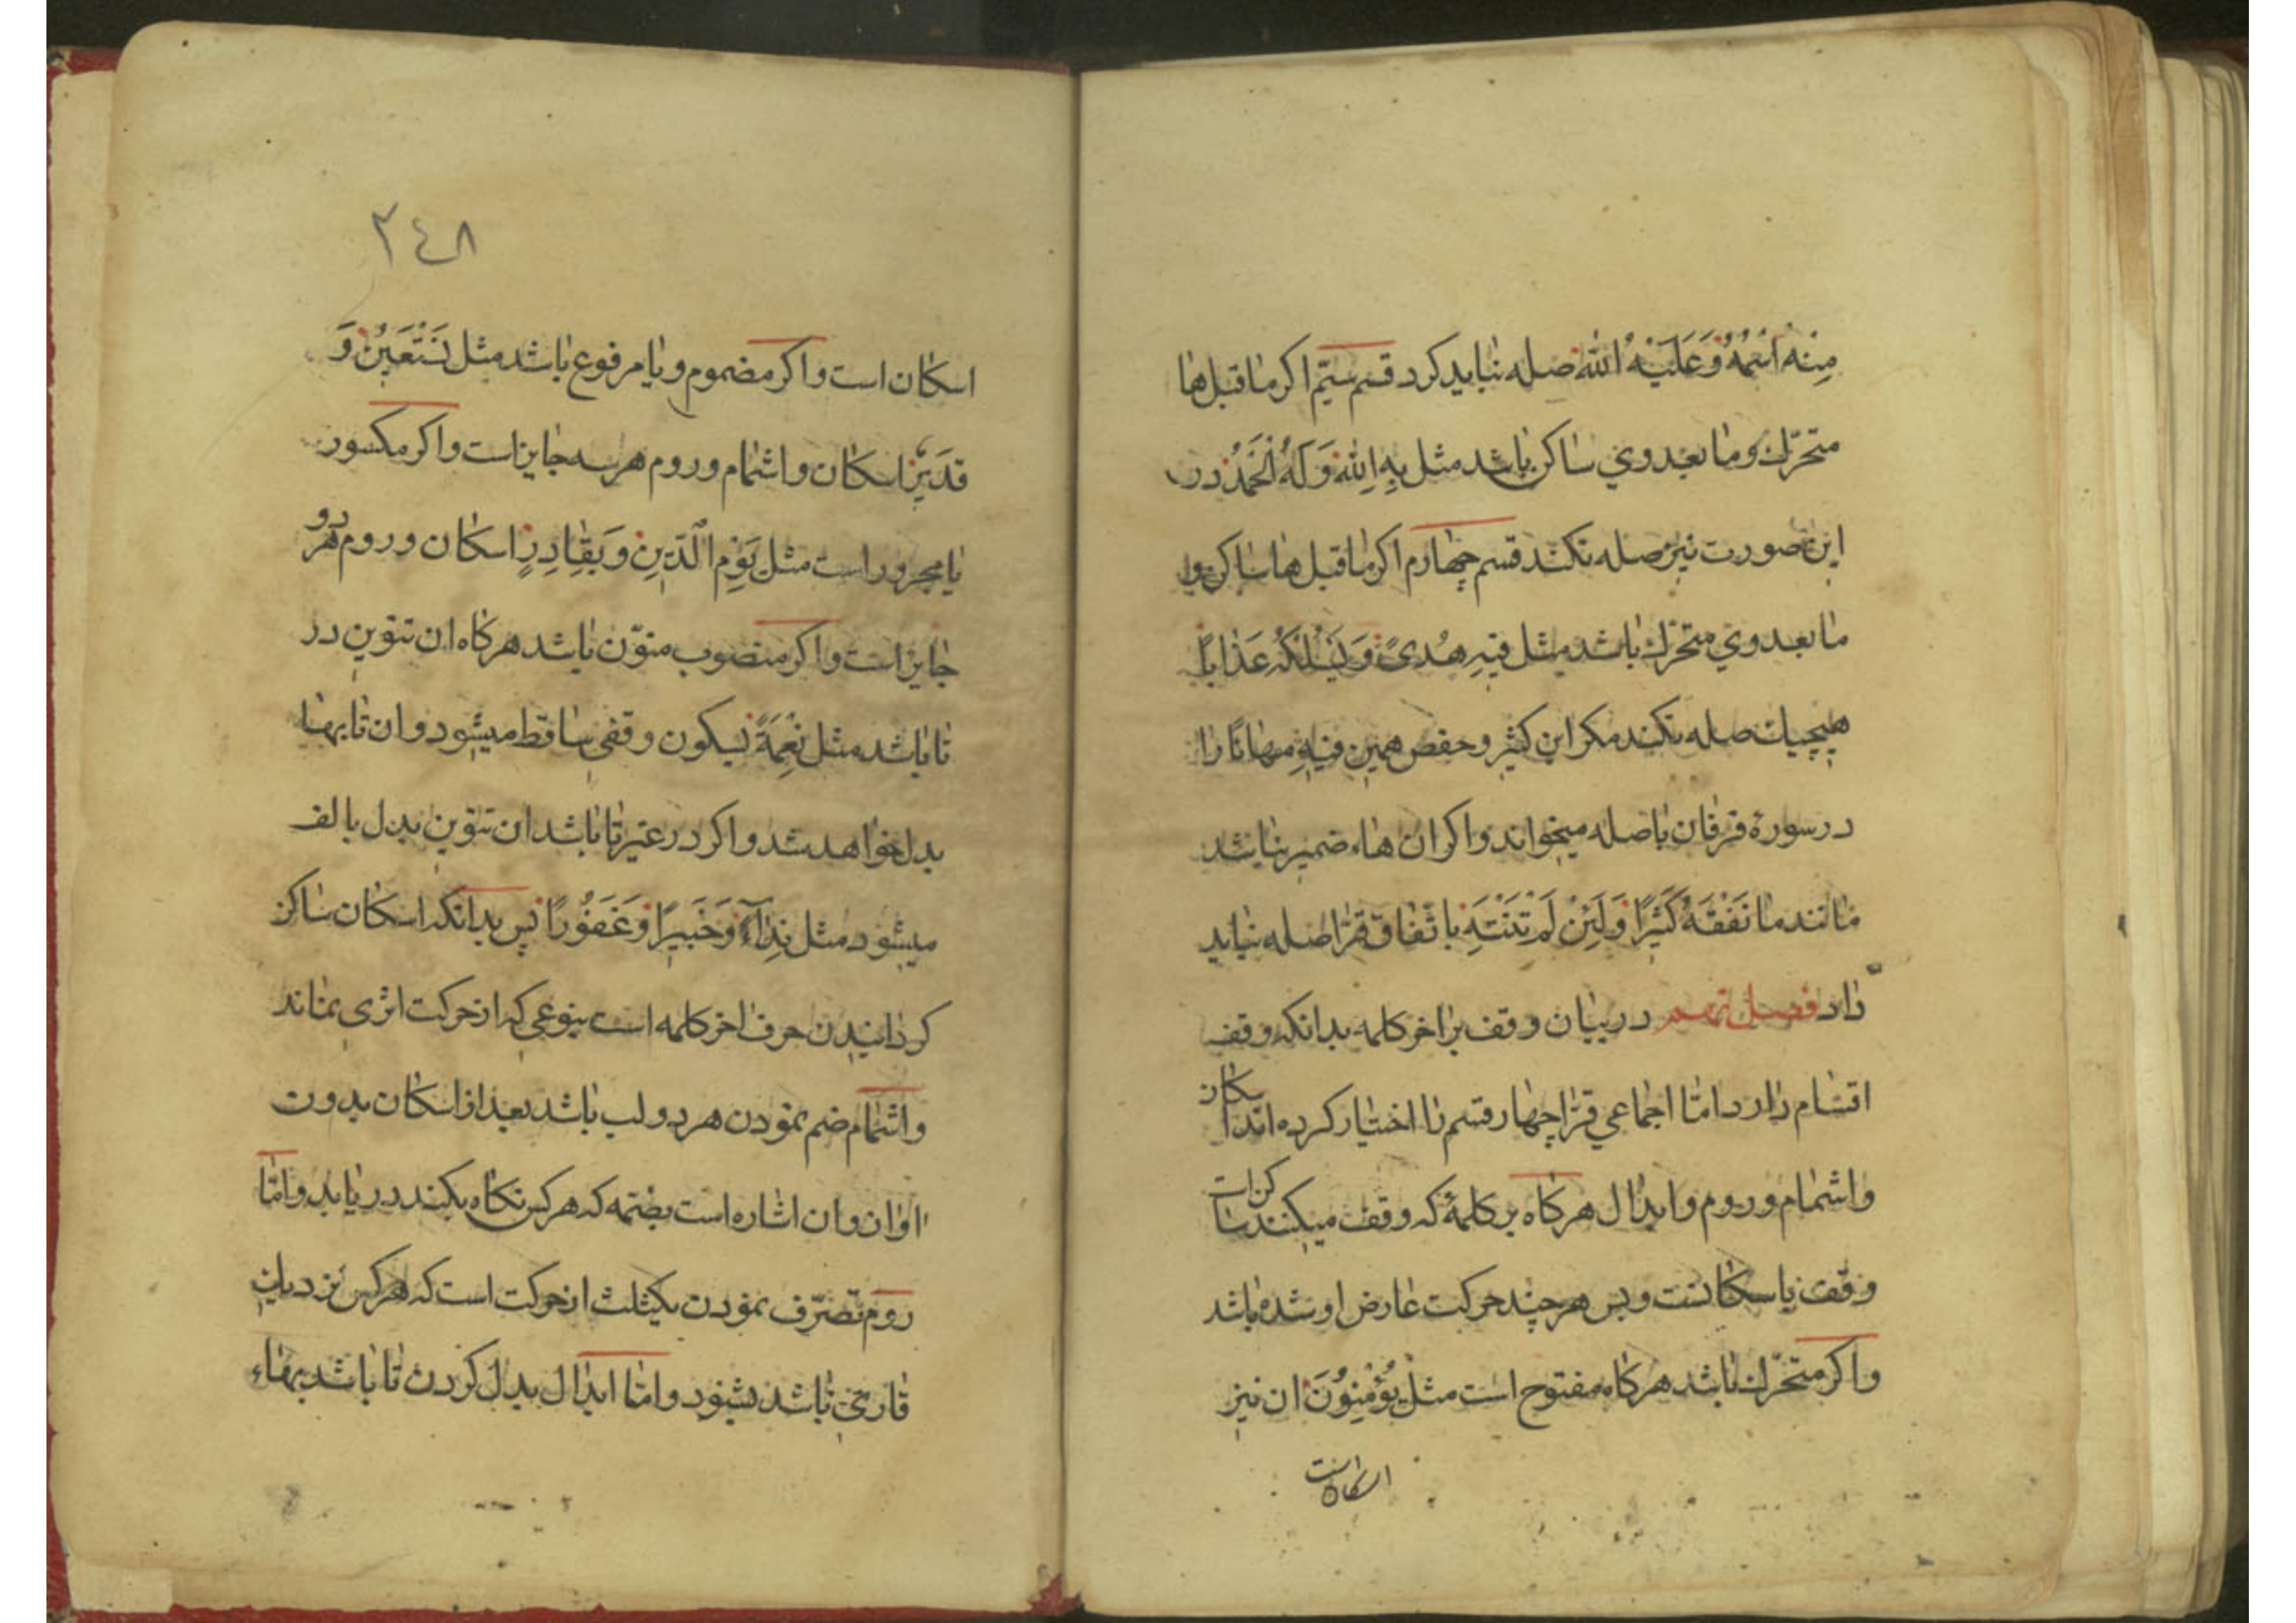 منه اسمه و علیه الله صله نباید کرد قسم سیّم اکر ما قبل ها
متحرّك و ما بعد وي ساکن باشد مثل به الله وَ لَهُ الْحَمْدُ در
این صورت نیز صله نکنند قسم چهارم اکر ما قبل ها ساکن و
ما بعد وي متحرّك باشد مثل فیهِ هُدیً وَ یَسْلُکْهُ عَذاباً
هیچیك صله نکنند مکر ابن کثیر و حفص همین فیهِ مهانًا را
در سورهٔ فرقان با صله میخواند و اکر ان هاء ضمیر نباشد
مانند ما نَفْقَهُ کَثیرًا وَ لَئِنْ لَمْ تَنْتَهِ باتّفاق قرّا صله نباید
داد فصل نهم در بیان وقف بر اخر کلمه بدانکه وقف
اقسام دارد امّا اجماعي قرّا چهار قسم را اختیار کرده اند اسکان
و اشمام و روم و ابدال هرکاه بر کلمهٔ که وقف میکنند ساکن است
وقف باسکانست و بس هر چند حرکت عارض او شده باشد
و اکر متحرّك باشد هرکاه مفتوح است مثل یُؤْمِنُونَ ان نیز
اسکان است
٢٤٨
اسکان است و اکر مضموم و یا مرفوع باشد مثل نَسْتَعینُ وَ
قَدیرٌ اسکان و اشمام و روم هر سه جایز است و اکر مکسور
یا مجرور است مثل یَوْمِ الدّینِ و بِقادِرٍ اسکان و روم هر دو
جایز است و اکر منصوب منوّن باشد هرکاه ان تنوین در
تا باشد مثل نِعْمَةً بسکون وقفي ساقط میشود و ان تا بها
بدل خواهد شد و اکر در غیر تا باشد ان تنوین بدل بالف
میشود مثل نِداءً وَ خَبیرًا وَ غَفُورًا پس بدانکه اسکان ساکن
کردانیدن حرف اخر کلمه است بنوعي که از حرکت اثري نماند
و اشمام ضم نمودن هر دو لب باشد بعد از اسکان بدون
اوان و ان اشاره است بضمّه که هر کس نکاه بکند دریابد و امّا
روم تصرّف نمودن یکثلث از حرکت است که هر کس نزدیك
قاري باشد بشنود و امّا ابدال بدل کردن تا باشد بهاء